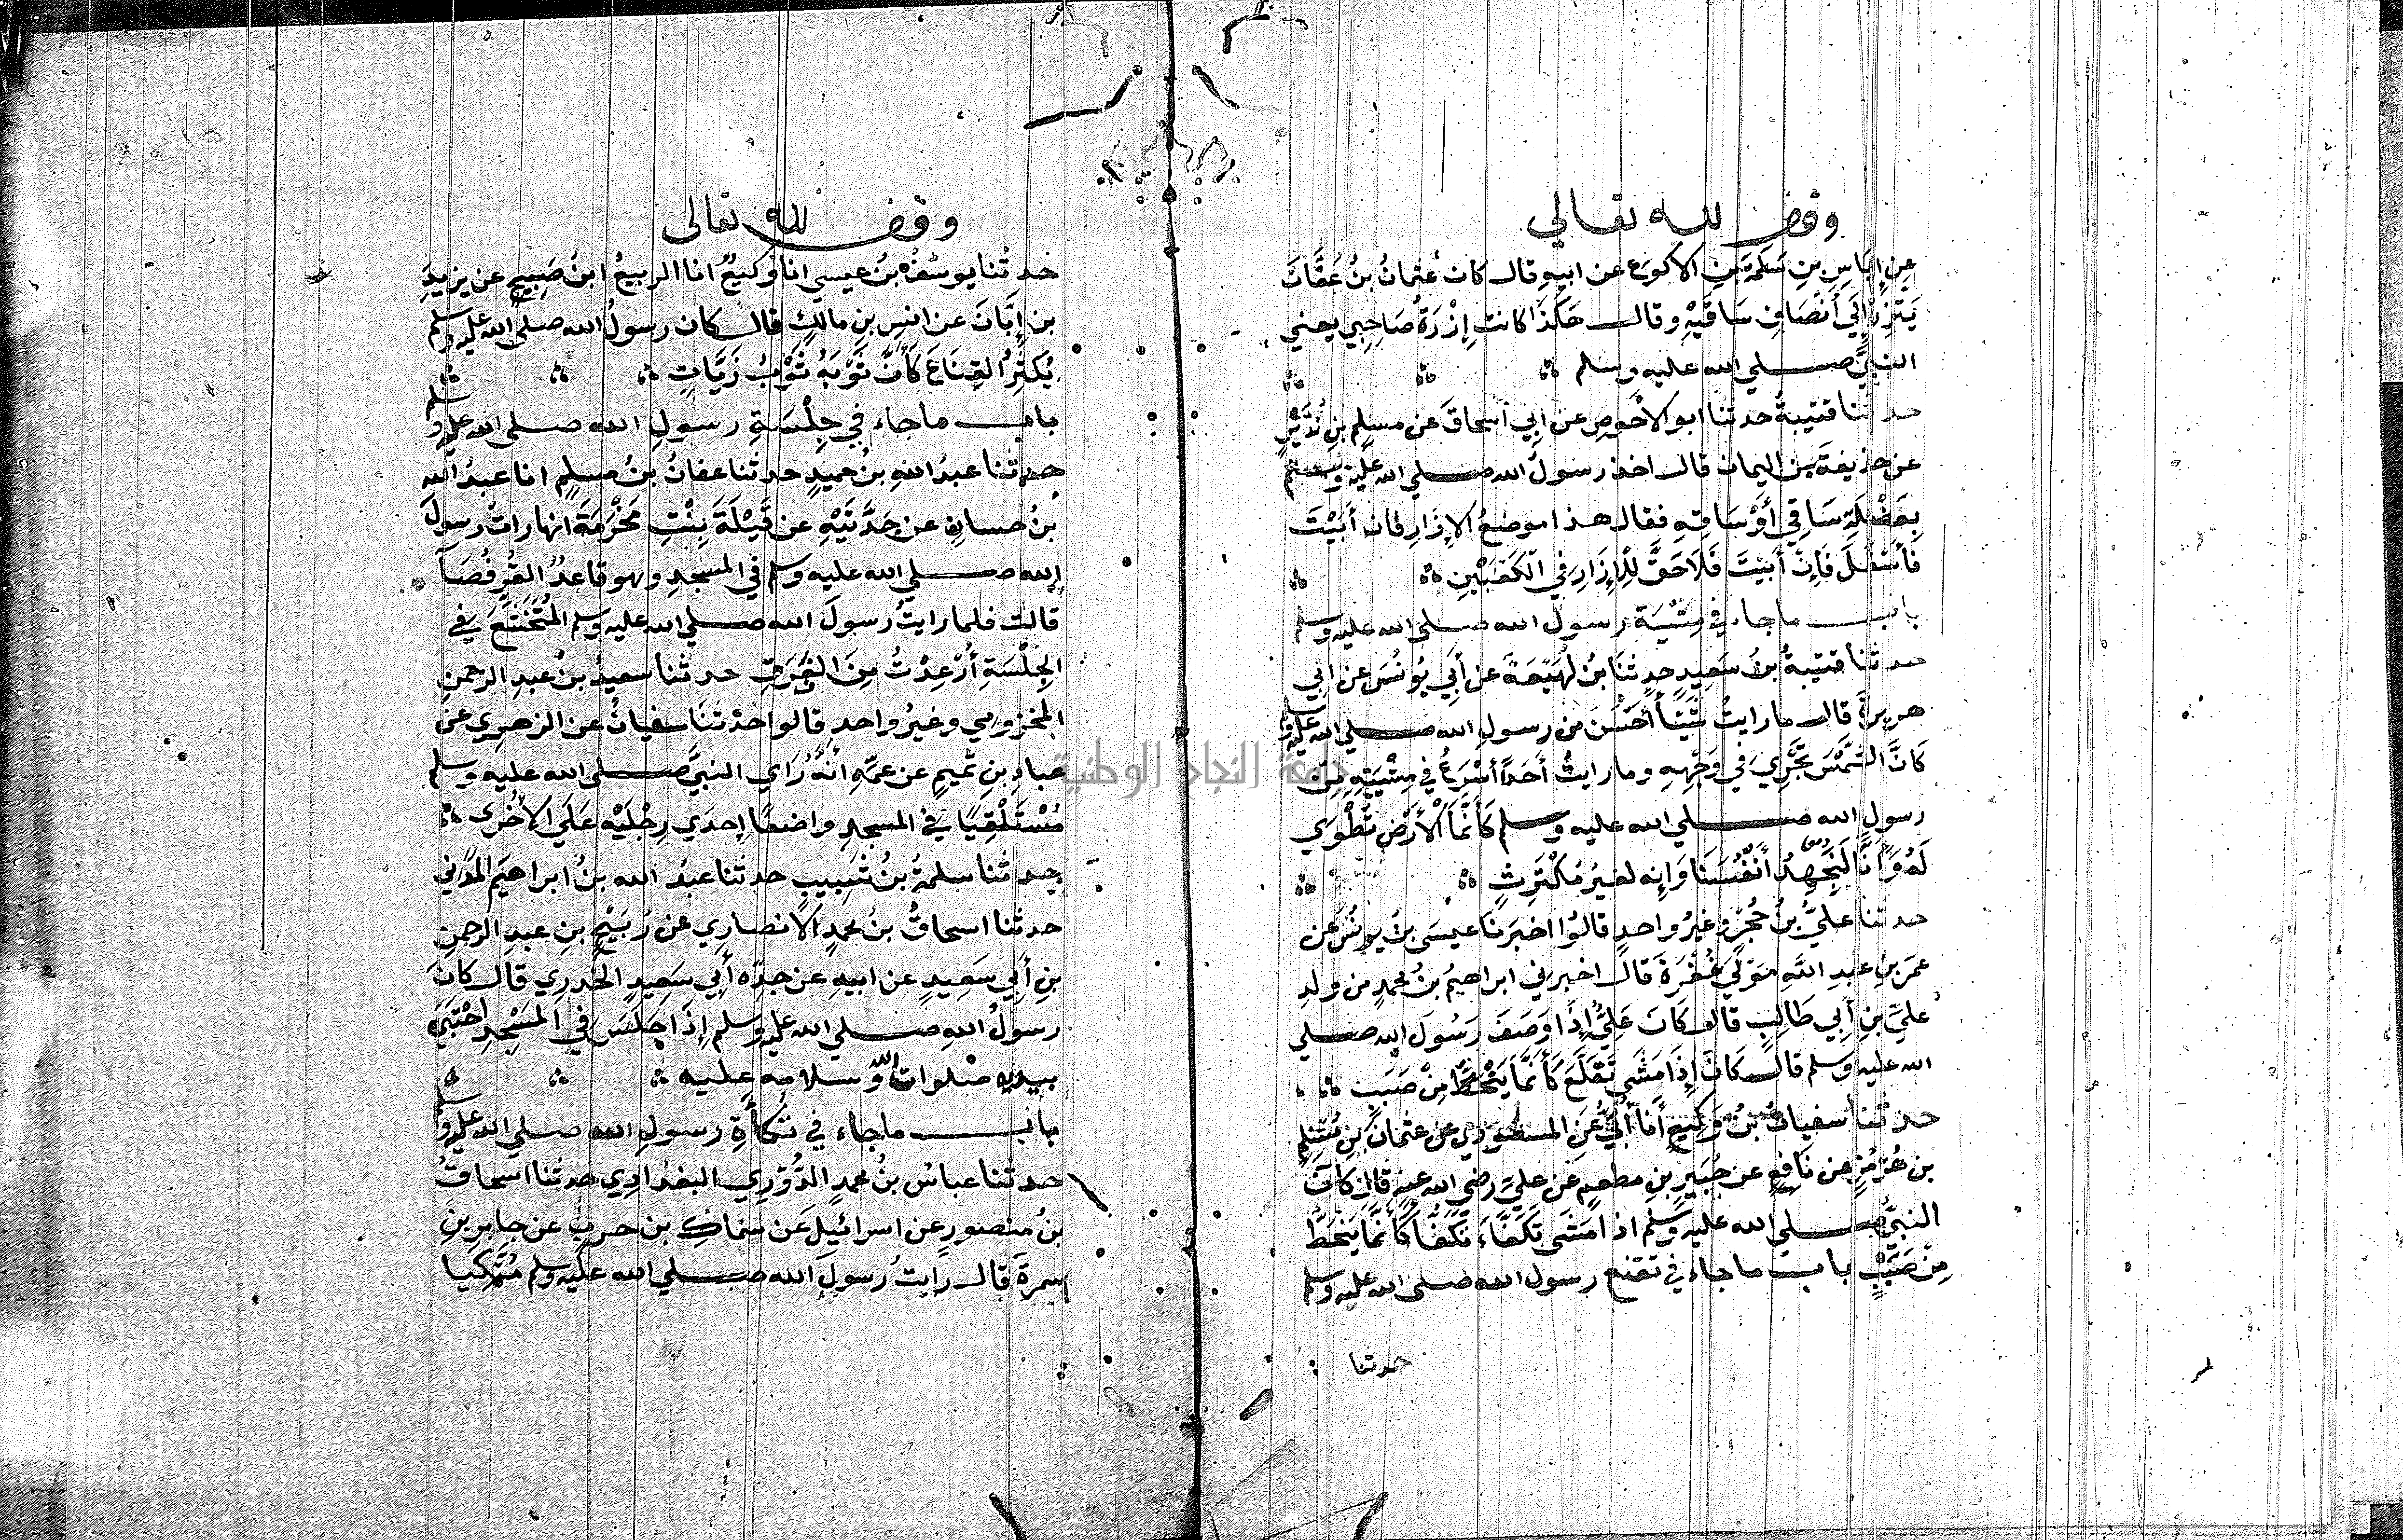 وقف لله تعالي
عن إياس بن سلمة بن الاكوع عن ابيه قال كان عثمان بن عفان
يتزر إلي أنصاف ساقيه وقال هكذا كانت إزرة صاحبي يعني
النبي صلي الله عليه وسلم
حدثنا قتيبة حدثنا ابو الاحوص عن ابي اسحاق عن مسلم بن نذير
عن حذيفة بن اليمان قال اخذ رسول الله صلي الله عليه وسلم
بعضلة ساقي أو ساقه فقال هذا موضع الإزار فان أبيت
فأسفل فإن أبيت فلا حق للإزار في الكعبين
باب ما جاء في مشية رسول الله صلي الله عليه وسلم
حدثنا قتيبة بن سعيد حدثنا بن لهيعة عن أبي يونس عن ابي
هريرة قال ما رايت شيئا أحسن من رسول الله صلي الله عليه و
كان الشمس تجري في وجهه وما رايت أحدا أسرع في مشيته من
رسول الله صلي الله عليه وسلم كأنما الأرض تطوي
له وإنا لنجهد أنفسنا وإنه لغير مكترث
حدثنا علي بن حجر وغير واحد قالوا اخبرنا عيسى بن يونس عن
عمر بن عبد الله مولي غفرة قال اخبرني ابراهيم بن محمد من ولد
علي بن أبي طالب قال كان علي إذا وصف رسول الله صلي
الله عليه وسلم قال كان إذا مشي تقلع كأنما ينحط من صبب
حدثنا سفيان بن وكيع أنا أبي عن المسعودي عن عثمان بن مسلم
بن هرمز عن نافع عن جبير بن مطعم عن علي رضي الله عنه قال كان
النبي صلي الله عليه وسلم اذا مشى تكفاء تكفأ كأنما ينحط
من صبب باب ما جاء في تقنع رسول الله صلى الله عليه وسلم
حدثنا
وقف لله تعالى
حدثنا يوسف بن عيسي انا وكيع انا الربيع ابن صبيح عن يزيد
بن إبان عن انس بن مالك قال كان رسول الله صلى الله عليه وسلم
يكثر القناع كأن ثوبه ثوب زيات
باب ما جاء في جلسة رسول الله صلى الله عليه وسلم
حدثنا عبد الله بن حميد حدثنا عفان بن مسلم انا عبد الله
بن حسان عن جدتيه عن قيلة بنت مخرمة انها رات رسول
الله صلي الله عليه وسلم في المسجد وهو قاعد القرفصا
قالت فلما رايت رسول الله صلي الله عليه وسلم المتخشع في
الجلسة أرعدت من الفرق حدثنا سعيد بن عبد الرحمن
المخزومي وغير واحد قالوا حدثنا سفيان عن الزهري عن
عباد بن تميم عن عمه أنه راي النبي صلى الله عليه وسلم
مستلقيا في المسجد واضعا إحدي رجليه علي الأخرى
حدثنا سلمة بن شبيب حدثنا عبد الله بن ابراهيم المدني
حدثنا اسحاق بن محمد الانصاري عن ربيح بن عبد الرحمن
بن أبي سعيد عن ابيه عن جده أبي سعيد الخدري قال كان
رسول الله صلي الله عليه وسلم إذا جلس في المسجد احتبي
بيديه صلوات الله وسلامه عليه
باب ما جاء في تكأة رسول الله صلي الله عليه وسلم
حدثنا عباس بن محمد الدوري البغدادي حدثنا اسحاق
بن منصور عن اسرائيل عن سماك بن حرب عن جابر بن
سمرة قال رايت رسول الله صلي الله عليه وسلم متكيا
جامعة النجاح الوطنية